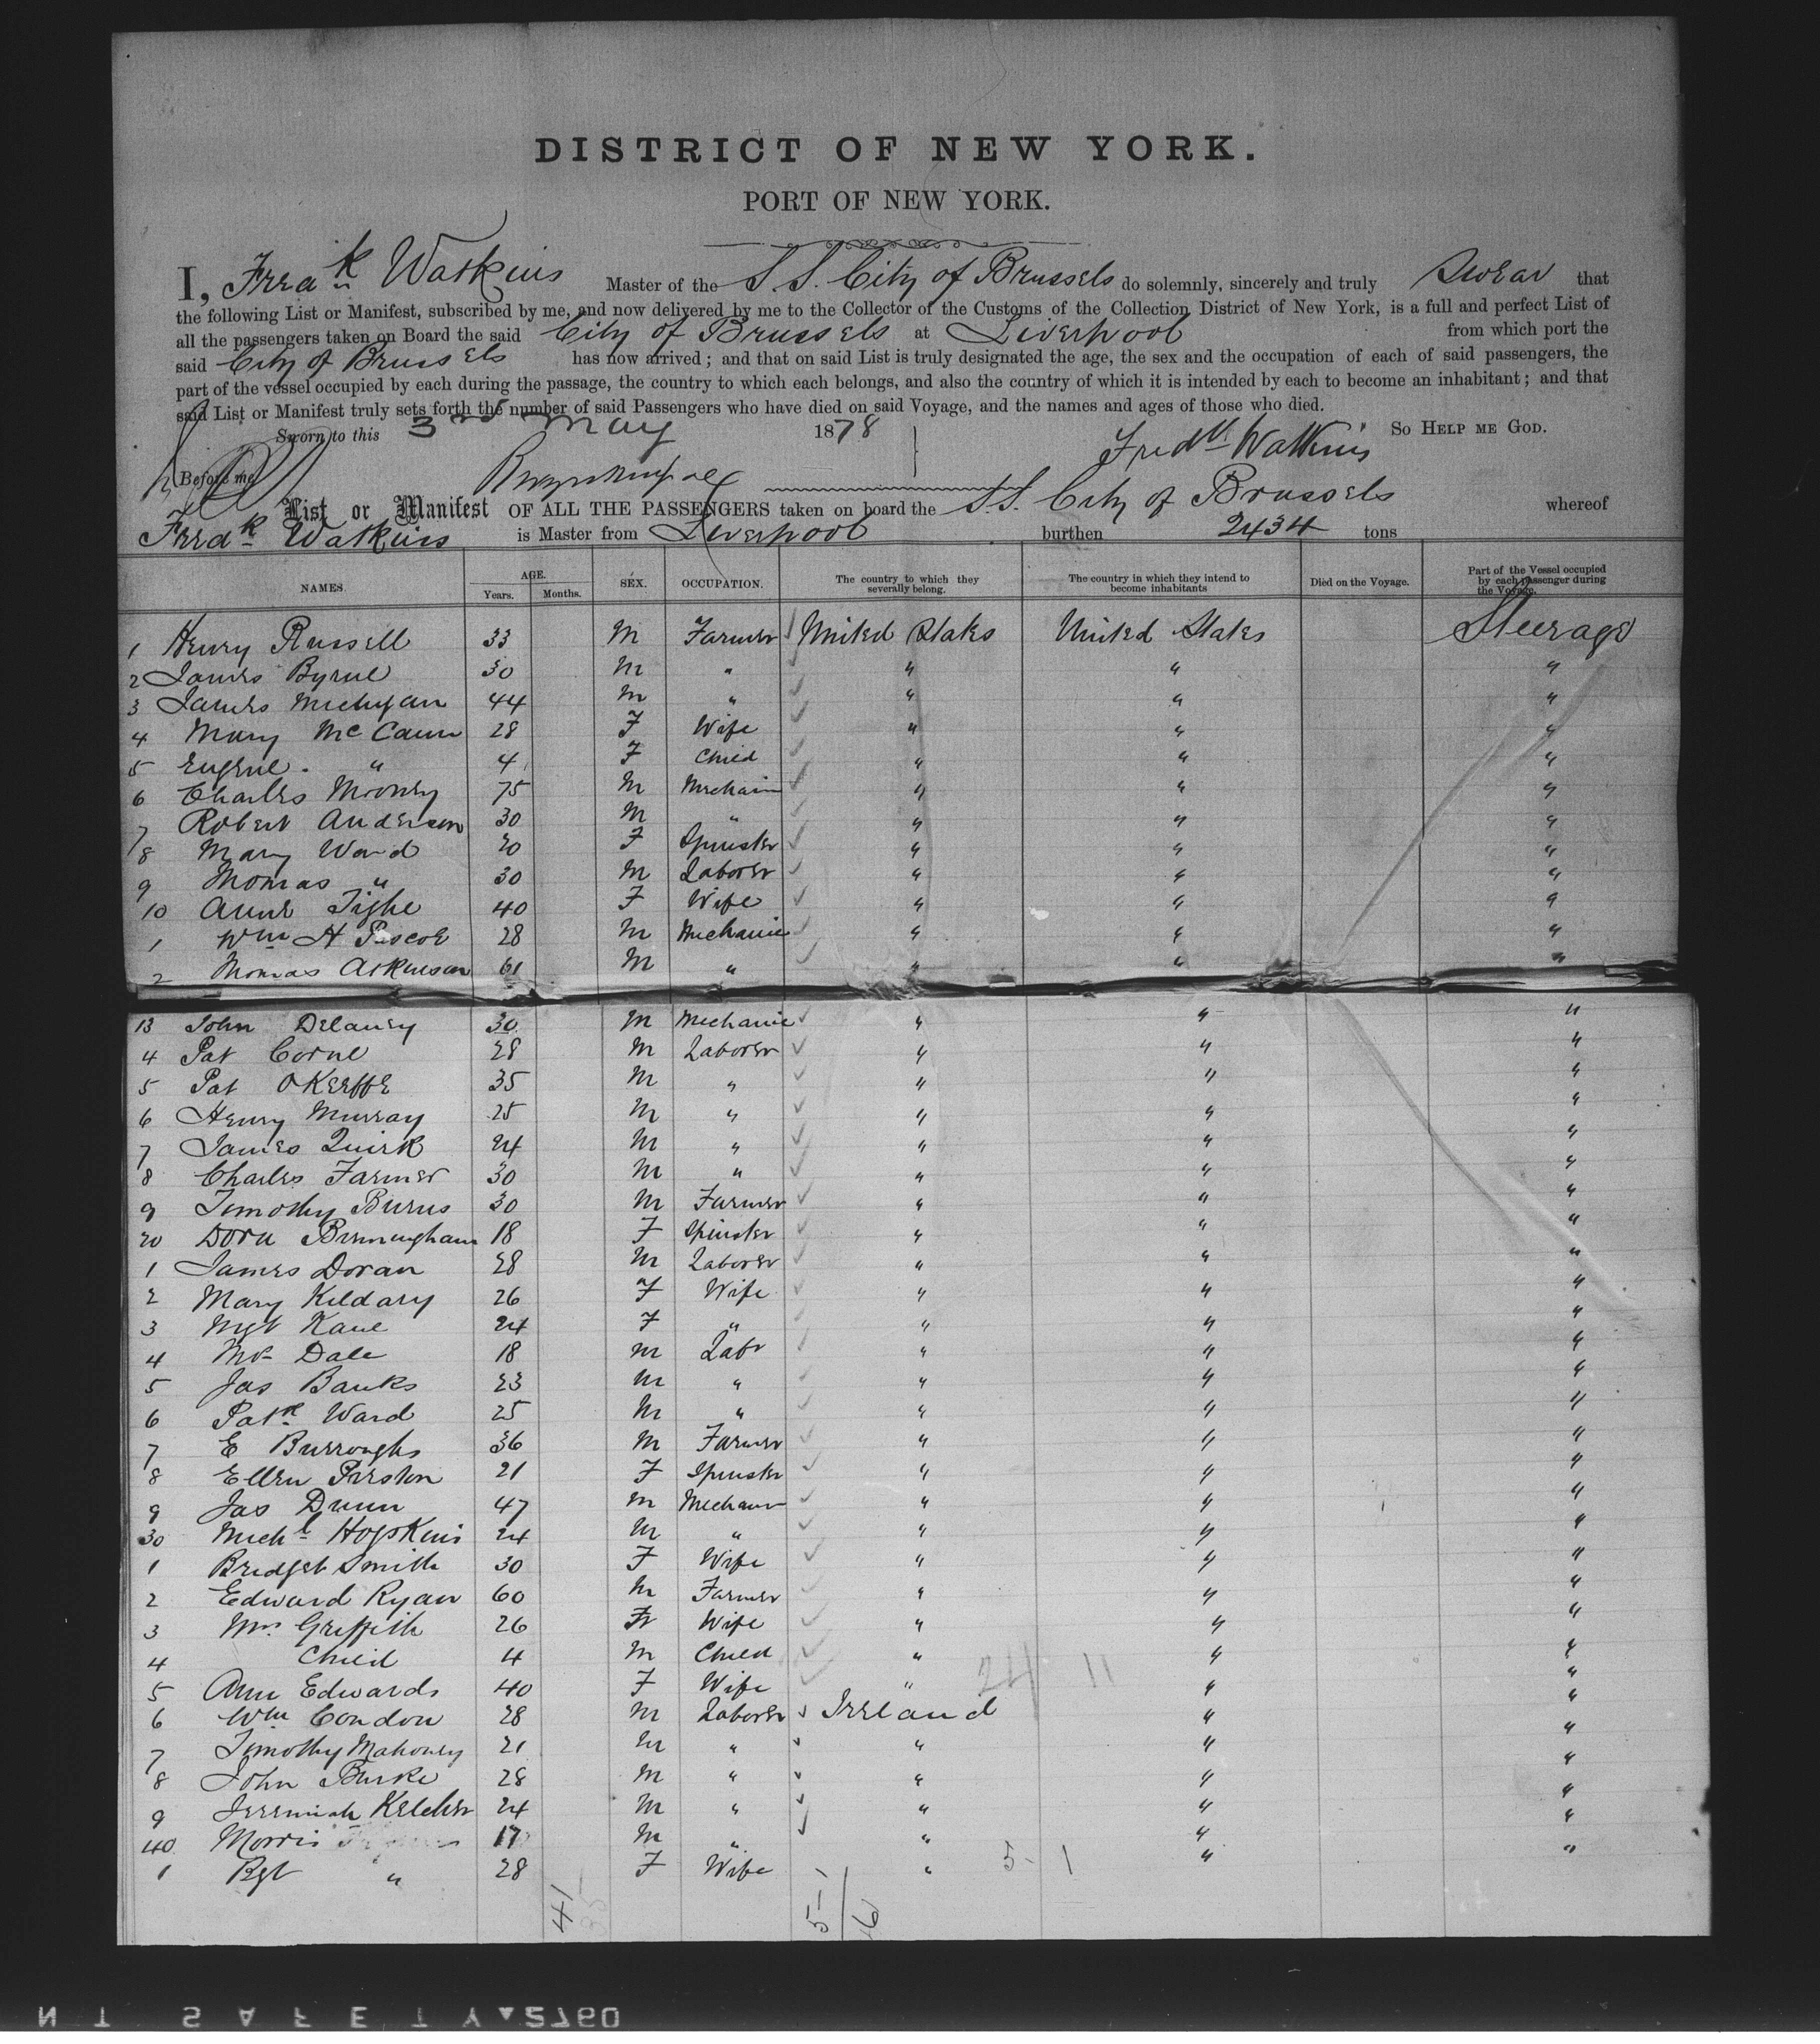 DISTRICT OF NEW YORK.
PORT OF NEW YORK.
I, Fredk Watkins Master of the S.S. City of Brussels do solemnly, sincerely and truly Swear that
the following List or Manifest, subscribed by me, and now delivered by me to the Collector of the Customs of the Collection District of New York, is a full and perfect List of
all the passengers taken on Board the said City of Brussels at Liverpool from which port the
said City of Brussels has now arrived; and that on said List is truly designated the age, the sex and the occupation of each of said passengers, the
part of the vessel occupied by each during the passage, the country to which each belongs, and also the country of which it is intended by each to become an inhabitant; and that
said List or Manifest truly sets forth the number of said Passengers who have died on said Voyage, and the names and ages of those who died.
Sworn to this 3rd May 1878 So HELP ME GOD.
Fredk Watkins
Before me
List or Manifest OF ALL THE PASSENGERS taken on board the S.S. City of Brussels whereof
Fredk Watkins is Master from Liverpool burthen 2434 tons
NAMES. AGE. Years. Months. SEX. OCCUPATION. The country to which they severally belong. The country in which they intend to become inhabitants Died on the Voyage. Part of the Vessel occupied by each passenger during the Voyage.
1 Henry Russell 33 M Farmer United States United States Steerage
2 James Byrne 30 M " " " "
3 James 44 M " " " "
4 Mary McCann 28 F Wife " " "
5 Eugene " 4 F Child " " "
6 Charles Mooney 75 M Mechanic " " "
7 Robert Anderson 30 M " " " "
8 Mary Ward 20 F Spinster " " "
9 Thomas " 30 M Laborer " " "
10 Anne Tighe 40 F Wife " " "
1 Wm H Pascoe 28 M Mechanic " " "
2 Thomas Atkinson 61 M " " " "
13 John Delaney 30 M Mechanic " " "
4 Pat Corne 28 M Laborer " " "
5 Pat OKeeffe 35 M " " " "
6 Henry Murray 25 M " " " "
7 James Quirk 24 M " " " "
8 Charles Farmer 30 M " " " "
9 Timothy Burns 30 M Farmer " " "
20 Dora Birmingham 18 F Spinster " " "
1 James Doran 28 M Laborer " " "
2 Mary Kildary 26 F Wife " " "
3 Mgt Kane 24 F " " " "
4 Mr Dale 18 M Labr " " "
5 Jas Banks 23 M " " " "
6 Patk Ward 25 M " " " "
7 E Burroughs 36 M Farmer " " "
8 Ellen Preston 21 F Spinster " " "
9 Jas Dunn 47 M Mechanic " " "
30 Michl Hopkins 24 M " " " "
1 Bridget Smith 30 F Wife " " "
2 Edward Ryan 60 M Farmer " " "
3 Mrs Griffith 26 F Wife " " "
4 Child 4 M Child " " "
5 Ann Edwards 40 F Wife " 24 11 " "
6 Wm Condon 28 M Laborer Ireland " "
7 Timothy Mahoney 21 M " " " "
8 John Burke 28 M " " " "
9 Jeremiah Kelcher 24 M " " " "
40 Morris 17 M " " " "
1 Bgt " 28 F Wife " 5 1 " "
41
35
5-1
/6
NT SAFETY▲2760